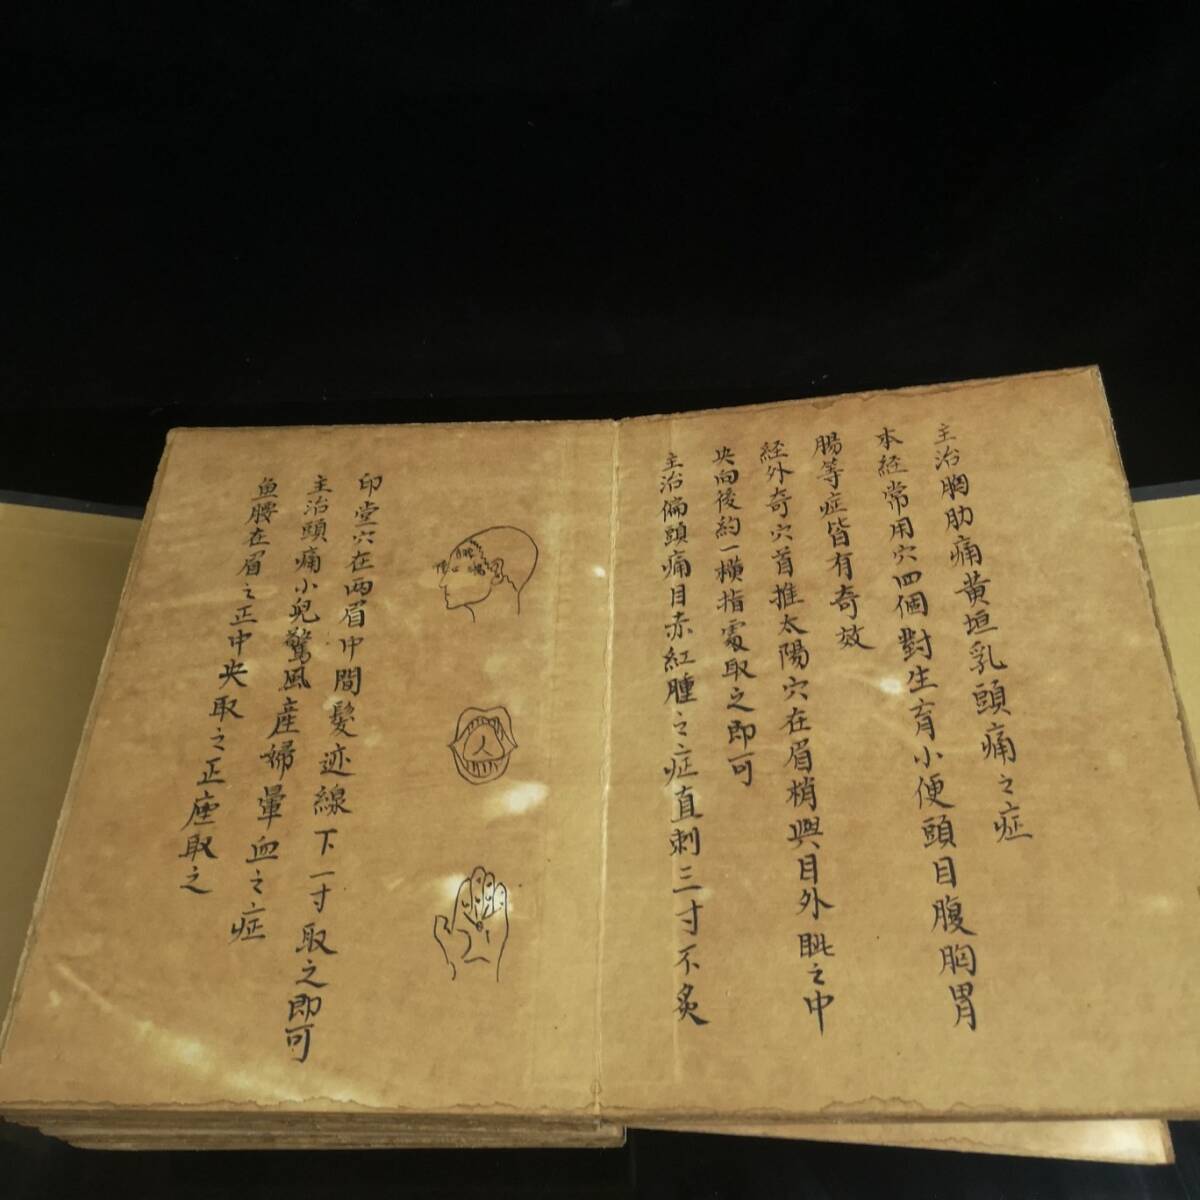 主治胸肋痛黄垣乳頭痛之症
本経常用穴四個對生育小便頭目腹胸胃
腸等症皆有奇效
経外奇穴首推太陽穴在眉梢與目外眦之中
央向後約一橫指處取之即可
主治偏頭痛目赤紅腫之症直刺三寸不炙
印堂穴在两眉中間髮迹線下一寸取之即可
主治頭痛小兒驚風産婦暈血之症
鱼腰在眉之正中央取之正座取之